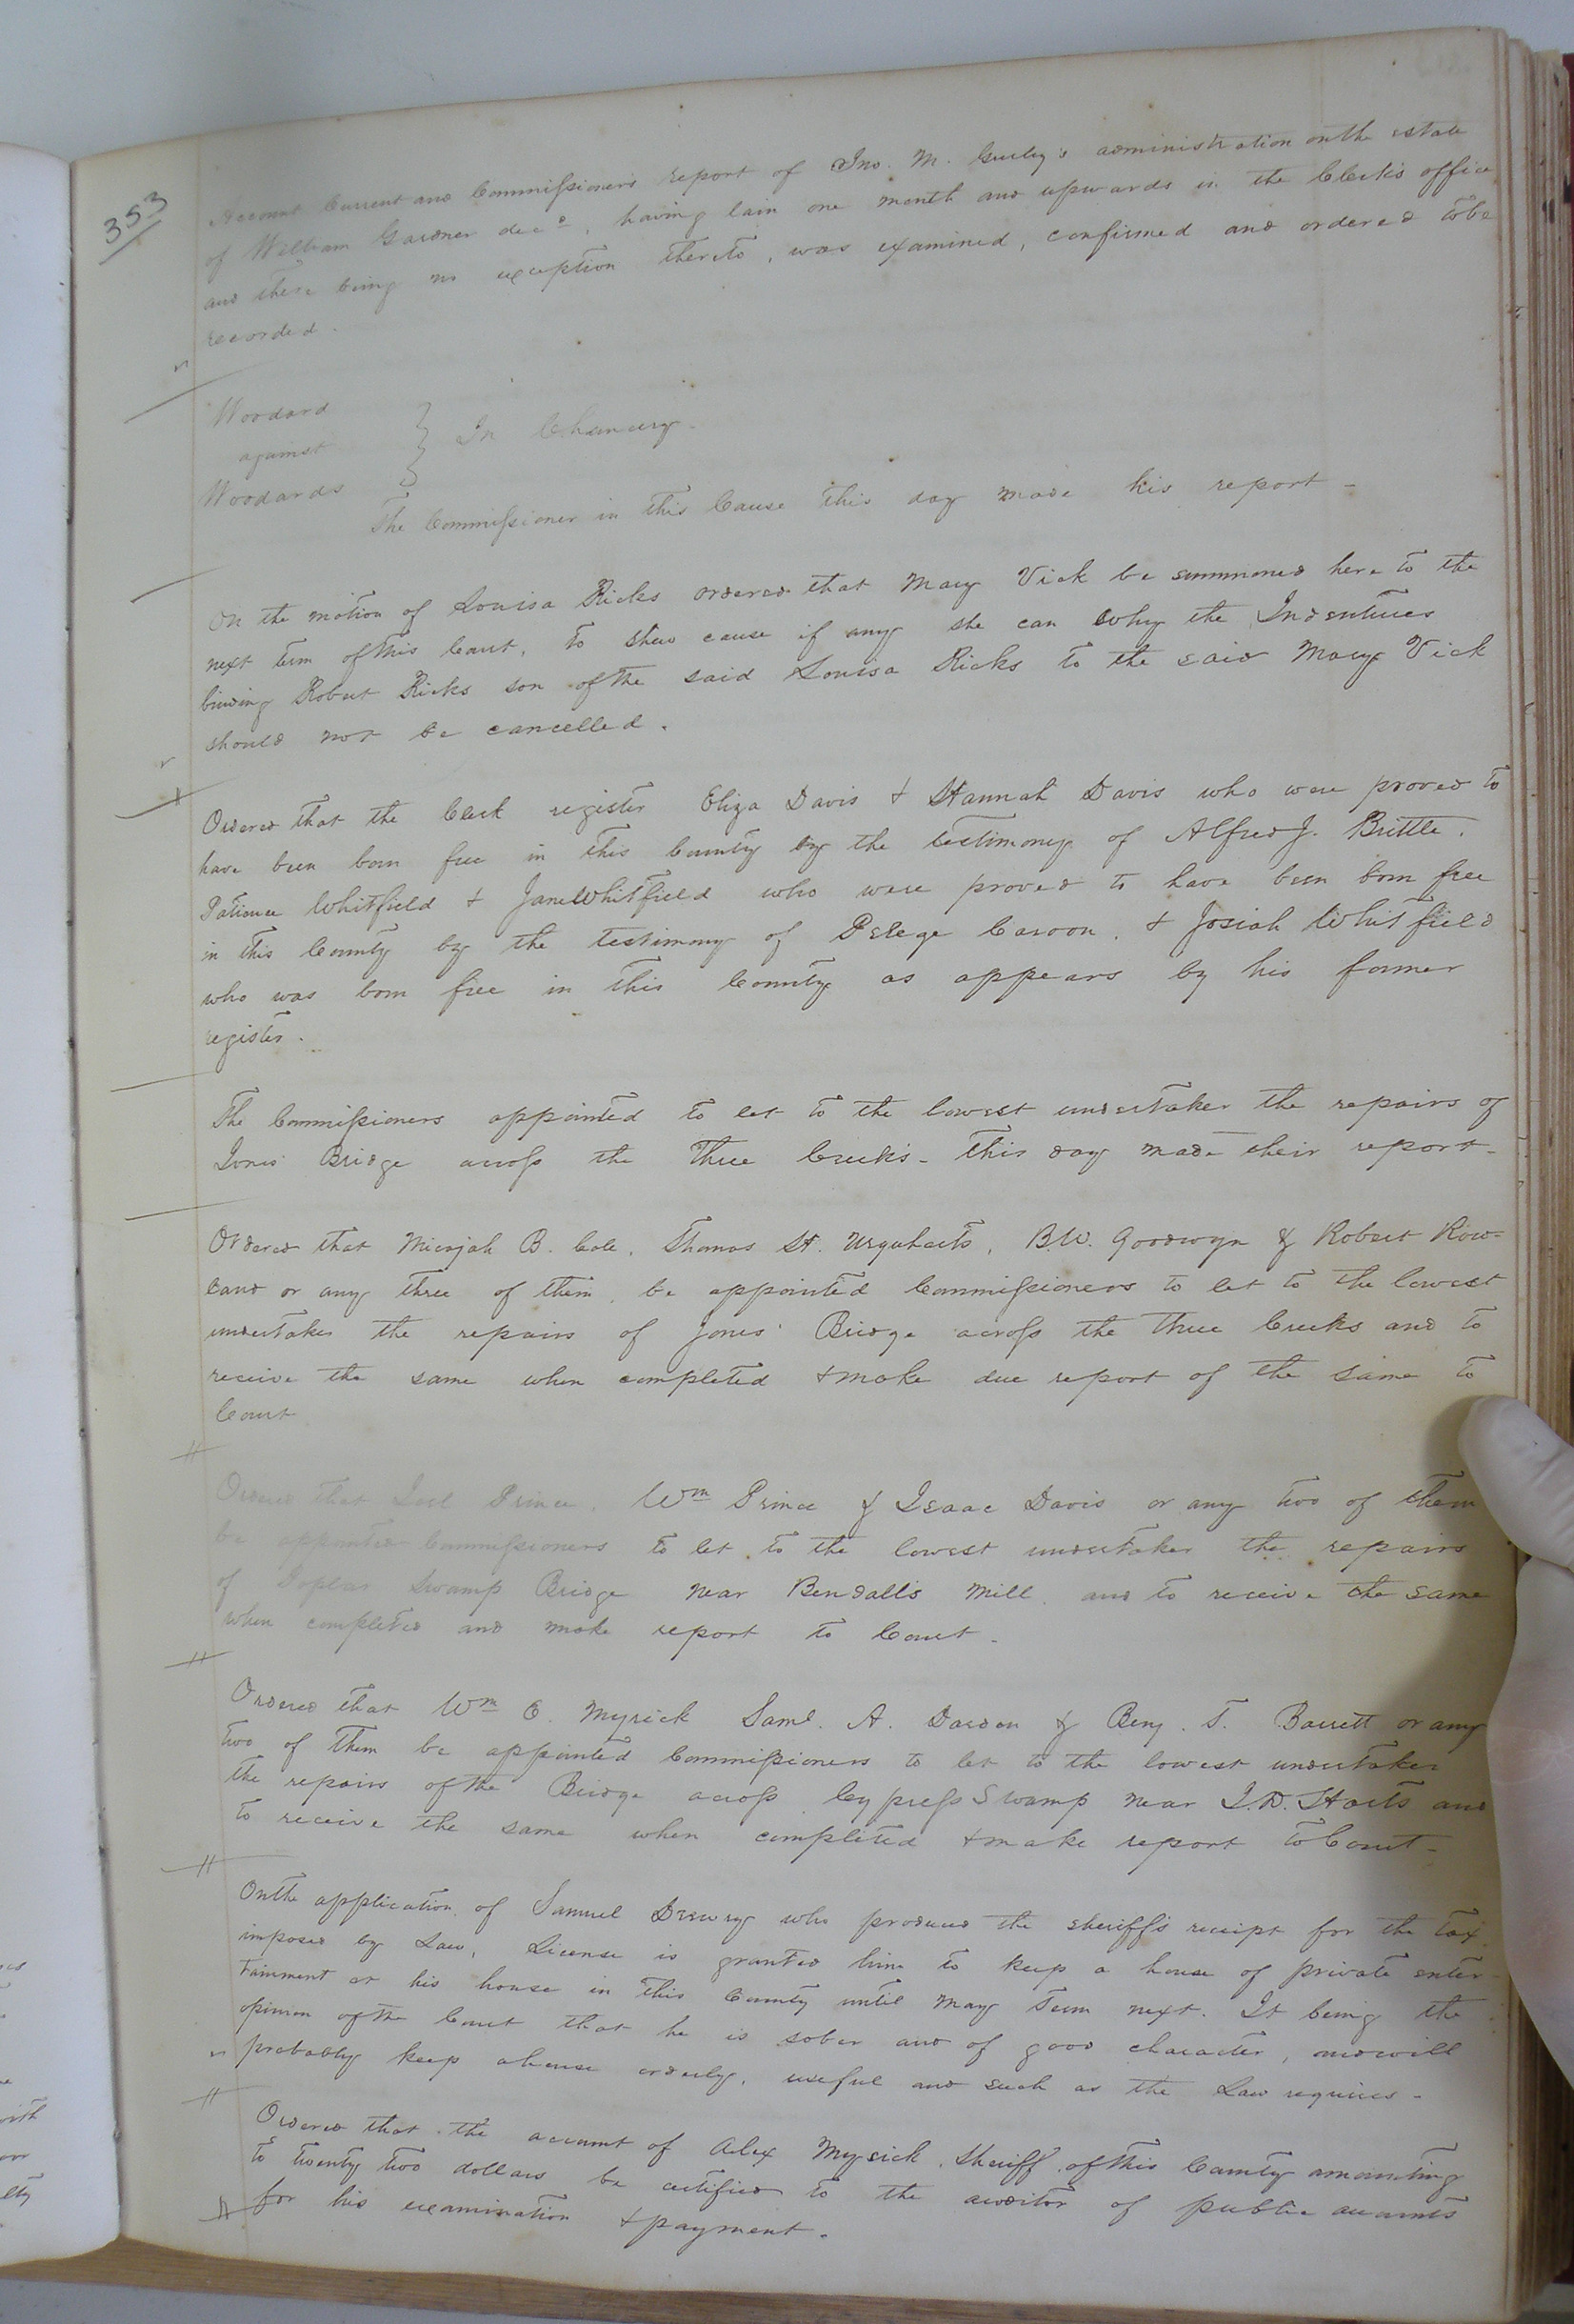 353
Account Current and Commissioners report of Jno. M. Gurley's administration on the estate
of William Gardner decd, having lain one month and upwards in the Clerks office
and there being no exception thereto, was examined, confirmed and ordered to be
recorded.
Woodard
against
Woodards
In Chancery.
The Commissioner in this Cause this day made his report -
On the motion of Louisa Ricks ordered that Mary Vick be summoned here to the
next term of this Court, to shew cause if any she can why the Indentures
binding Robert Ricks son of the said Louisa Ricks to the said Mary Vick
should not be cancelled.
Ordered that the Clerk register Eliza Davis & Hannah Davis who were proved to
have been born free in this County by the testimony of Alfred J. Brittle.
Patience Whitfield & Jane Whitfield who were proved to have been born free
in this County by the testimony of Pelege Cardon, & Josiah Whitfield
who was born free in this County as appears by his former
register.
The Commissioners appointed to let to the lowest undertaker the repairs of
Jones Bridge across the Three Creeks - this day made their report -
Ordered that Micajah B. Cole, Thomas H. Urquharts, B.W. Goodwyn & Robert Row-
land or any three of them, be appointed Commissioners to let to the lowest
undertaker the repairs of Jones' Bridge across the Three Creeks and to
receive the same when completed & make due report of the same to
Court
Ordered that Joel Prince, Wm Prince & Isaac Davis or any two of them
be appointed Commissioners to let to the lowest undertaker the repairs
of Poplar Swamp Bridge near Bendalls Mill, and to receive the same
when completed and make report to Court -
Ordered that Wm E. Myrick Saml. A. Darden & Benj. T. Barrett or any
two of them be appointed Commissioners to let to the lowest undertaker
the repairs of the Bridge across Cypress Swamp near J.D. Harts and
to receive the same when completed & make report to Court -
On the application of Samuel Drewry who produced the sheriff's receipt for the tax
imposed by Law, License is granted him to keep a house of private enter-
tainment at his house in this County until May Term next. It being the
opinion of the Court that he is sober and of good character, and will
probably keep a house orderly, useful and such as the Law requires -
Ordered that the account of Alex Myrick, Sheriff of this County amounting
to twenty two dollars be certified to the auditor of public accounts
for his examination & payment.